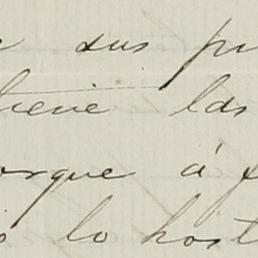 sus pu
tiene las
orque á f
s lo host